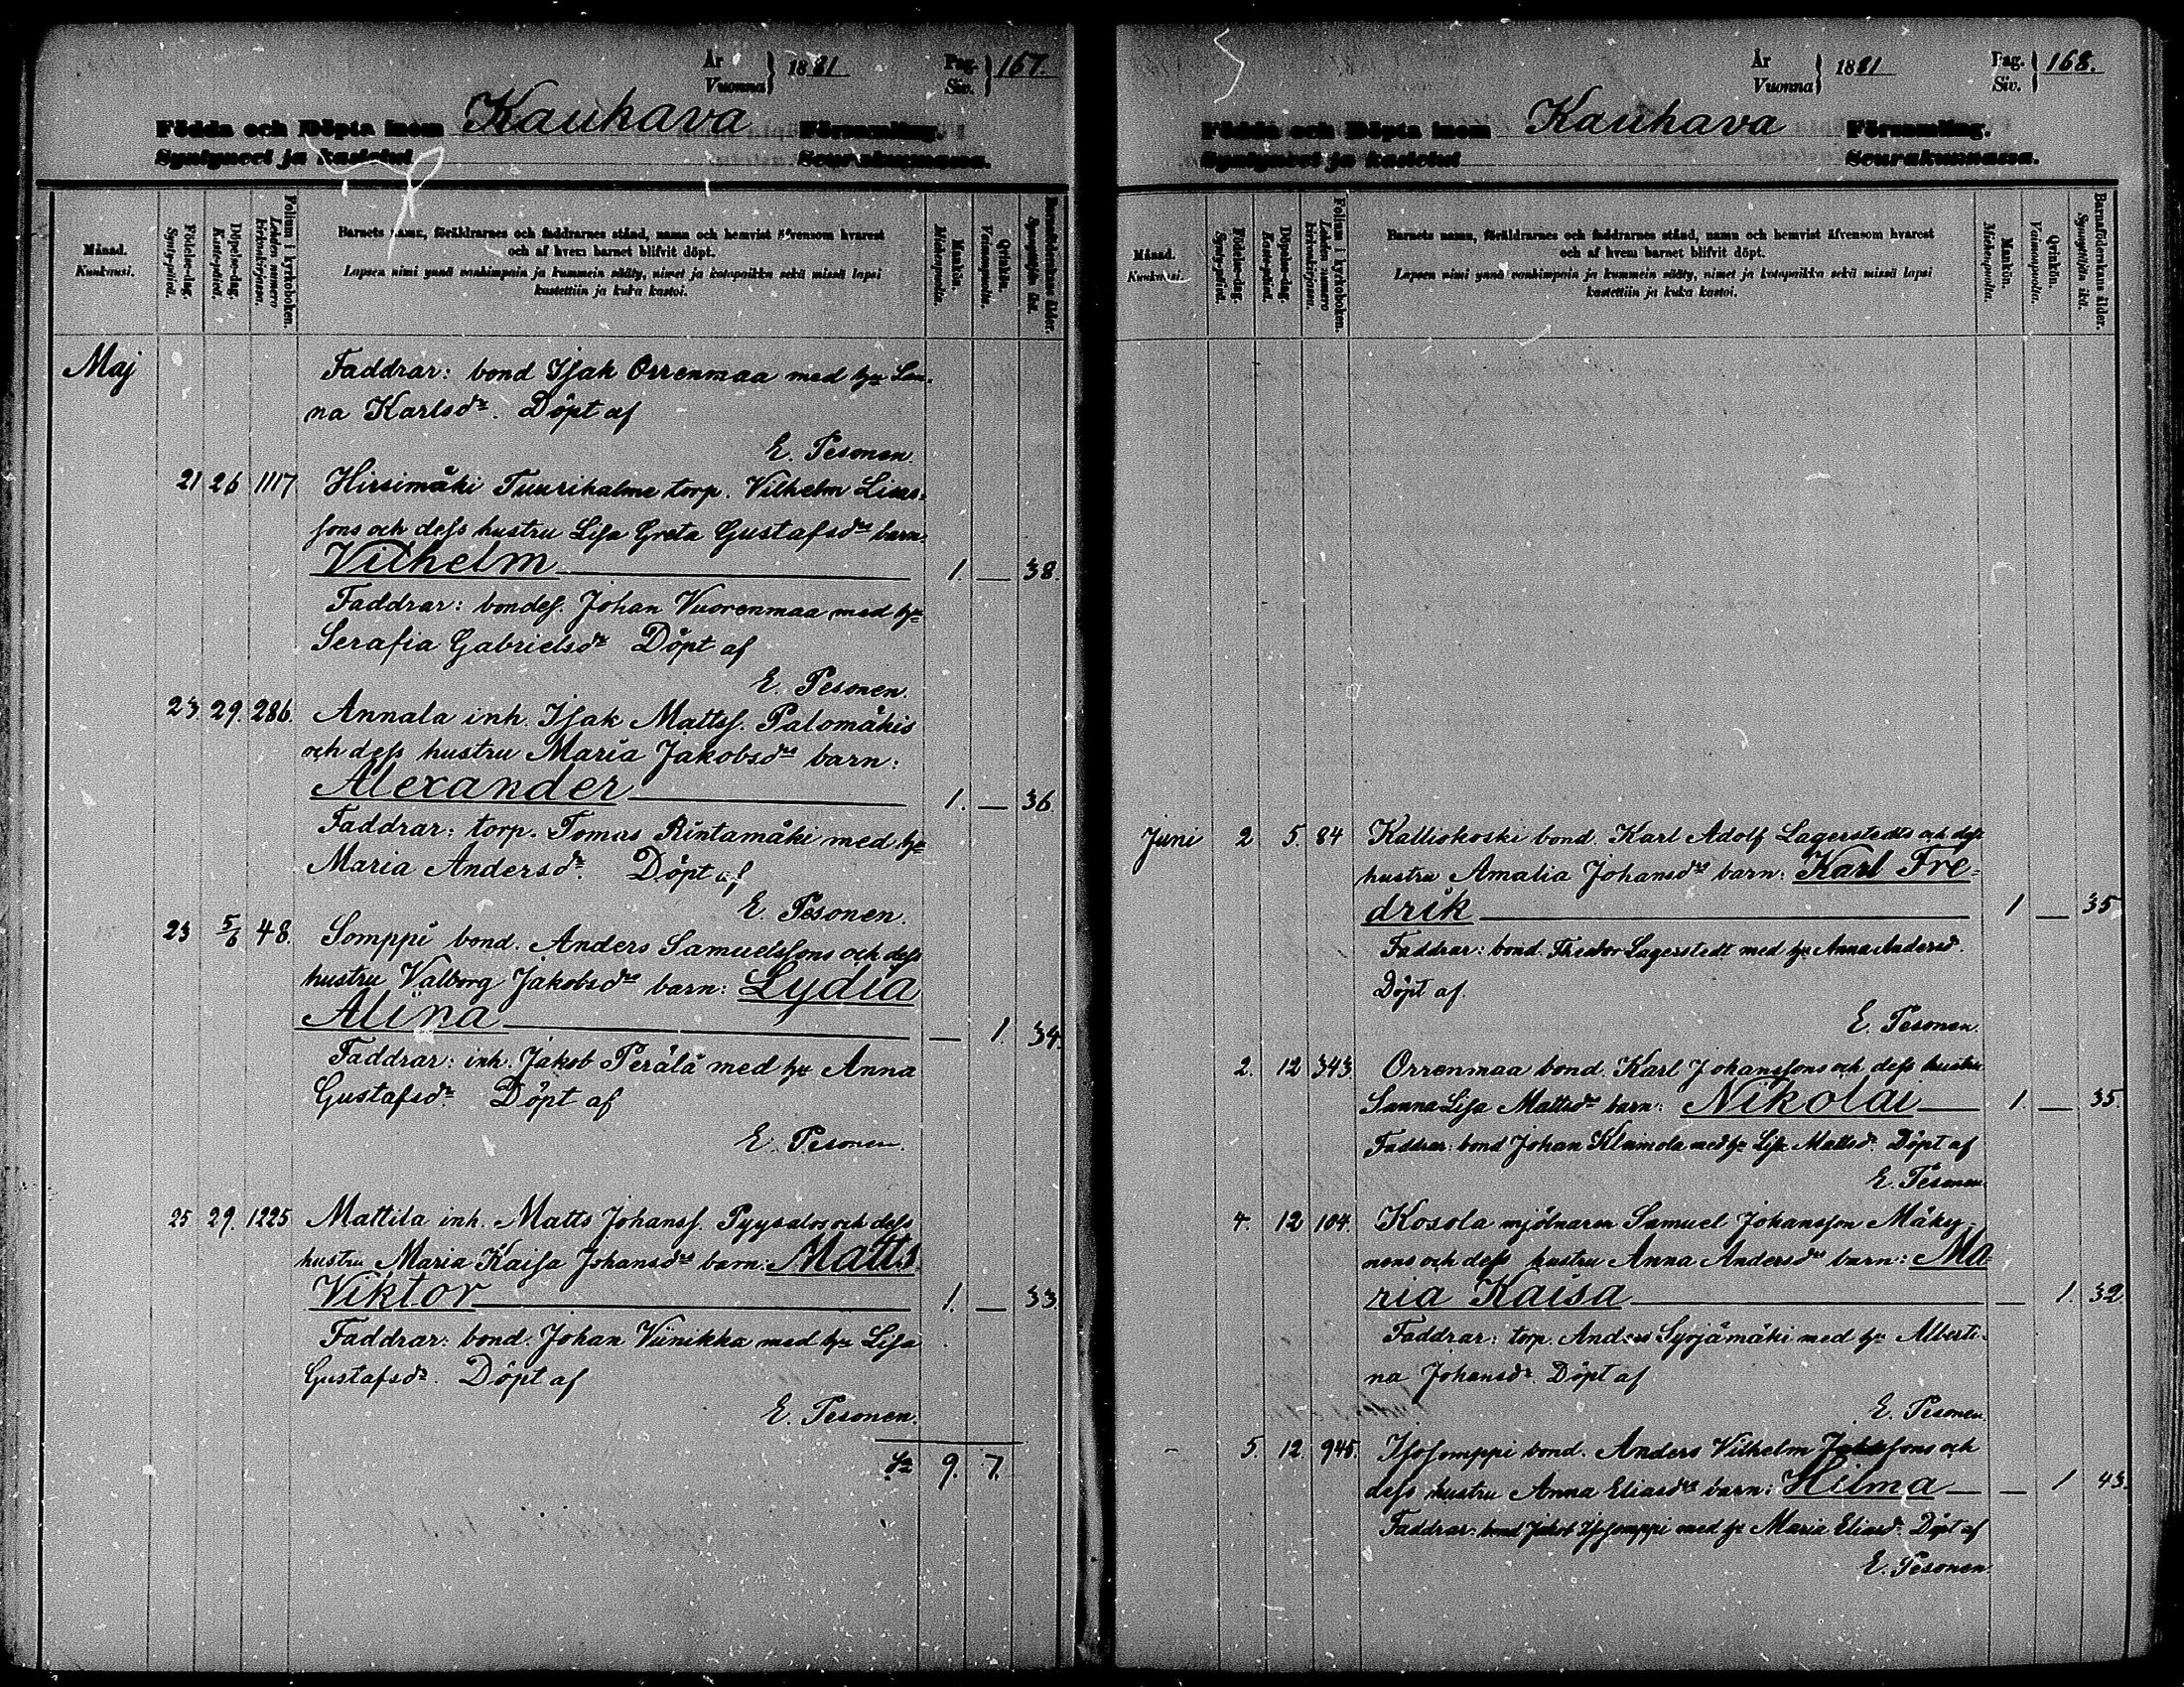 År
Vuonna } 1881
Pag.
Siv. } 167.
Födda och Döpta inom Kauhava Församling.
Syntyneet ja kastetut Seurakunnassa.
Månad.
Kuukausi.
Födelse-dag.
Synty-päivä.
Döpelse-dag.
Kaste-päivä.
Folium i kyrkoboken.
Lehden numero kirkonkirjassa.
Barnets namn, föräldrarnes och faddrarnes stånd, namn och hemvist äfvensom hvarest
och af hvem barnet blifvit döpt.
Lapsen nimi ynnä vanhimpain ja kummein sääty, nimet ja kotopaikka sekä missä lapsi
kastettiin ja kuka kastoi.
Mankön.
Miehenpuolia.
Qvinkön.
Vaimonpuolia.
Barnaföderskans ålder.
Synnyttäjän ikä.
Maj
Faddrar: bond Isak Orrenmaa med hu San-
na Karlsdr. Döpt af
E. Pesonen.
21 26 1117 Hirsimäki Tuurihalme torp. Vilhelm
sons och dess hustru Lisa Greta Gustafsdrs barn:
Vilhelm 1. — 38.
Faddrar: bondes. Johan Vuorenmaa med hu
Serafia Gabrielsdr Döpt af
E. Pesonen.
23. 29. 286. Annala inh. Isak Mattss. Palomäkis
och dess hustru Maria Jakobsdrs barn:
Alexander 1. — 36.
Faddrar: torp. Tomas Rintamäki med hu
Maria Andersdr. Döpt af
E. Pesonen.
23 5/6 48. Somppi bond. Anders Samuelssons och dess
hustru Valborg Jakobsdrs barn: Lydia
Alina — 1. 34.
Faddrar: inh. Jakob Perälä med hu Anna
Gustafsdr. Döpt af
E. Pesonen.
25 29. 1225 Mattila inh. Matts Johanss. Pyysalos och dess
hustru Maria Kaisa Johansdrs barn: Matts
Viktor 1. — 33.
Faddrar: bond. Johan Viinikka med hu Lisa
Gustafsdr. Döpt af
E. Pesonen.
Sa 9. 7.
År
Vuonna } 1881
Pag.
Siv. } 168.
Födda och Döpta inom Kauhava Församling.
Syntyneet ja kastetut Seurakunnassa.
Månad.
Kuukausi.
Födelse-dag.
Synty-päivä.
Döpelse-dag.
Kaste-päivä.
Folium i kyrkoboken.
Lehden numero kirkonkirjassa.
Barnets namn, föräldrarnes och faddrarnes stånd, namn och hemvist äfvensom hvarest
och af hvem barnet blifvit döpt.
Lapsen nimi ynnä vanhimpain ja kummein sääty, nimet ja kotopaikka sekä missä lapsi
kastettiin ja kuka kastoi.
Mankön.
Miehenpuolia.
Qvinkön.
Vaimonpuolia.
Barnaföderskans ålder.
Synnyttäjän ikä.
Juni 2 5. 84 Kalliokoski bond. Karl Adolf Lagerstedts och dess
hustru Amalia Johansdrs barn: Karl Fre-
drik 1 — 35
Faddrar: bond. Theodor Lagerstedt med hu Anna Andersd.
Döpt af.
E. Pesonen.
2. 12 343. Orrenmaa bond. Karl Johanssons och dess hustru
Sanna Lisa Mattsdrs barn: Nikolai 1. — 35.
Faddrar: bond Johan Klemola med hu Lisa Mattsdr. Döpt af
E. Pesonen.
4. 12 104. Kosola mjölnaren Samuel Johansson Mäky-
nens och dess hustru Anna Andersdrs barn: Ma-
ria Kaisa — 1. 32
Faddrar: torp. Anders Syrjämäki med hu Alberti-
na Johansdr. Döpt af
E. Pesonen.
5. 12. 945. Isosomppi bond. Anders Vilhelm och
dess hustru Anna Eliasdrs barn: Hilma — 1 43.
Faddrar: bond Jakob Isosomppi med hu Maria Eliasdr. Döpt af
E. Pesonen